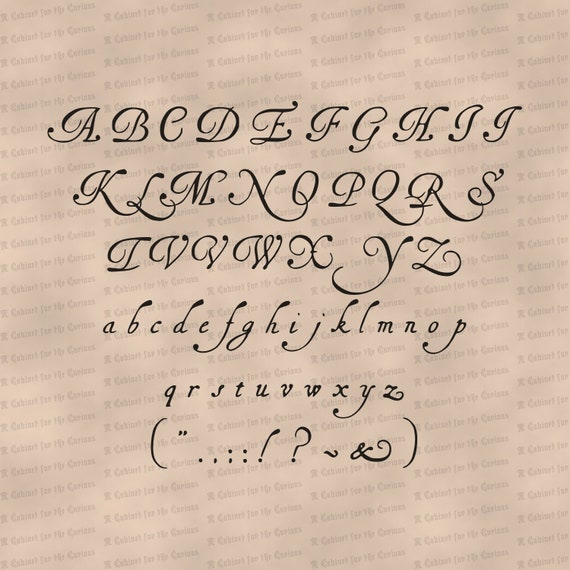 A B C D E F G H I I
K L M N O P Q R S
T V V W X Y Z
a b c d e f g h i j k l m n o p
q r s t u v w x y z
( " . , : ; ! ? ~ & )
A Cabinet for the Curious